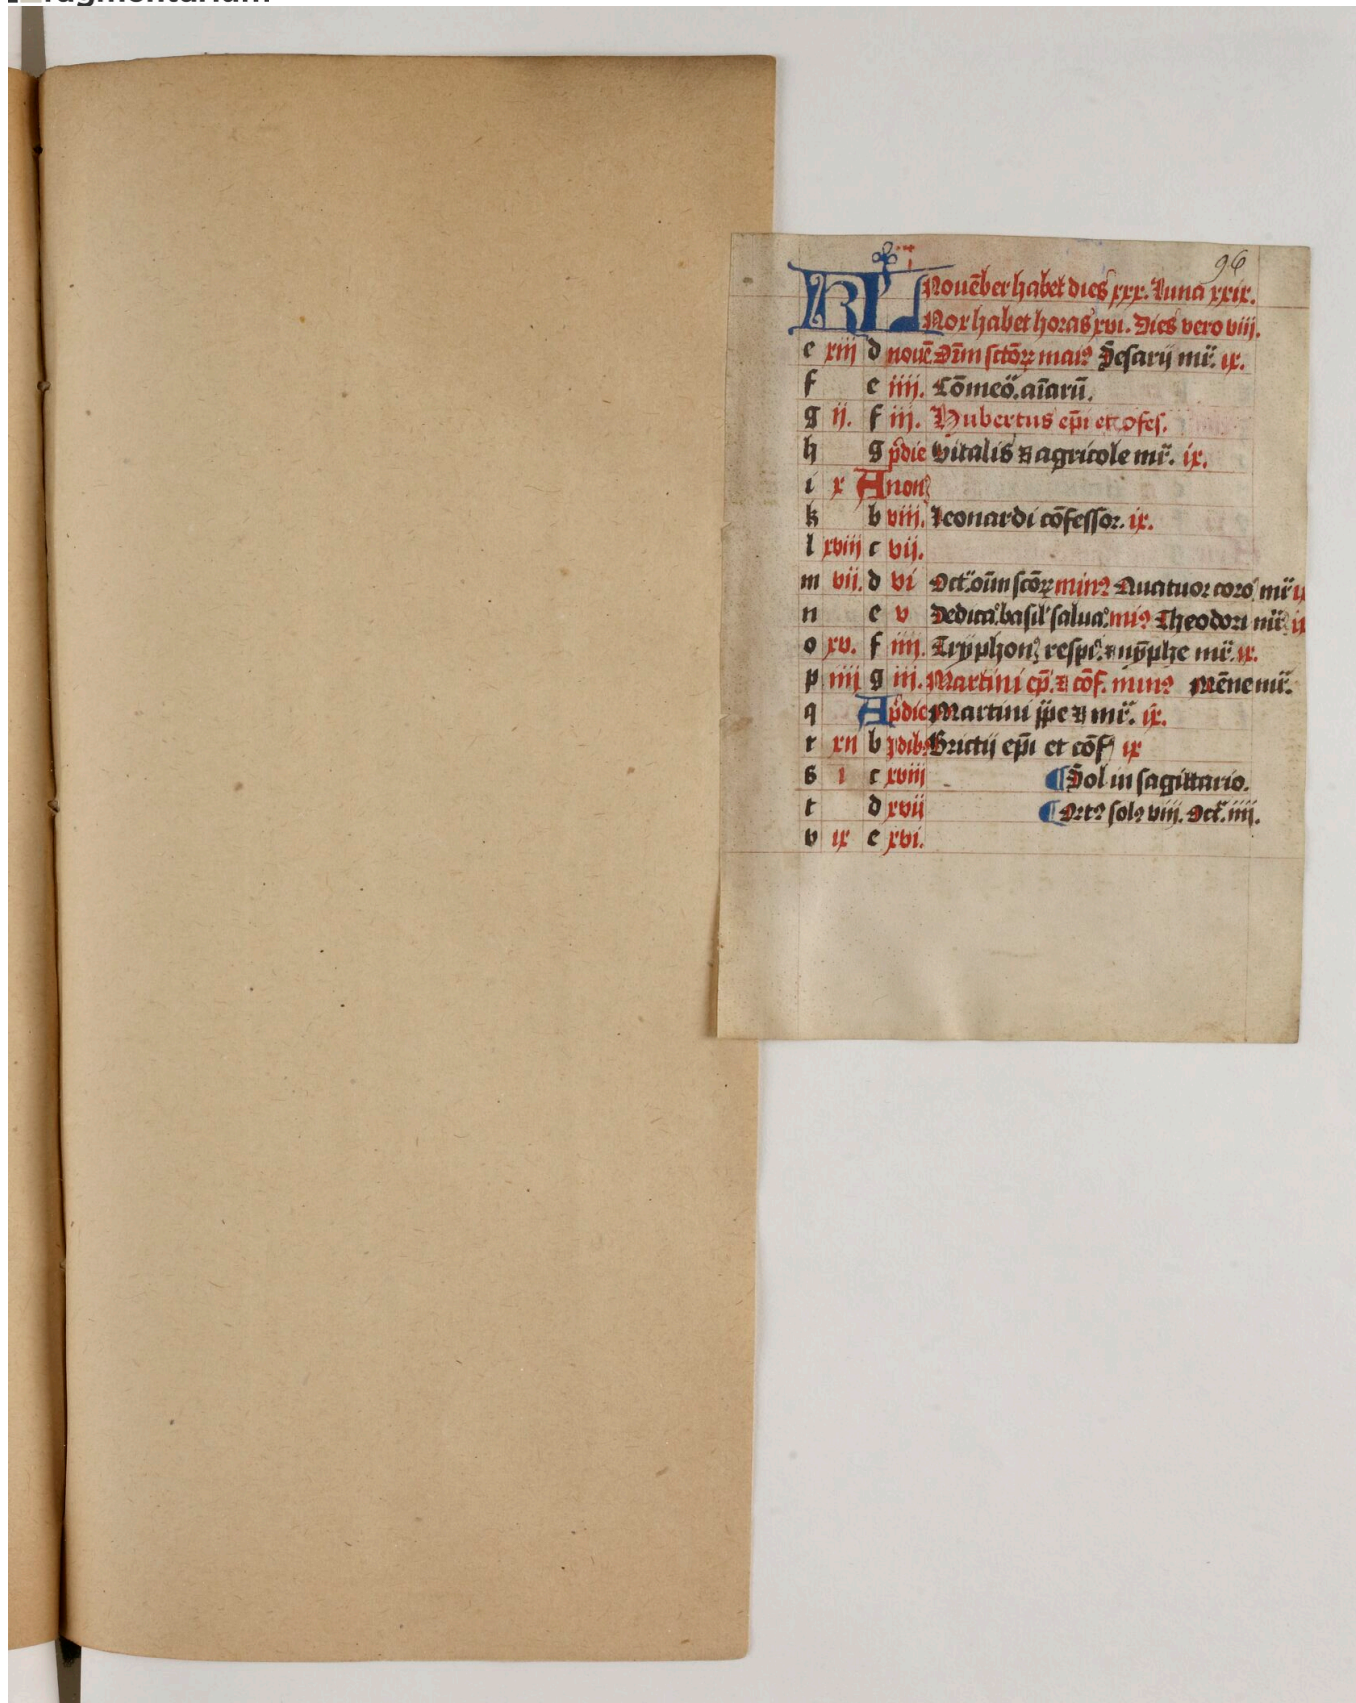 96
KL Nouēber habet dies xxx. Luna xxix.
Nox habet horas xvi. Dies vero viii.
e xiii d nouē Oīm sctōꝝ maiꝰ Cesarij mr̄. ix.
f e iiii. Cōmeō. aīarū.
g ii. f iii. Hubertus ep̄i et cōfes.
h g p̄die Vitalis ⁊ agricole mr̄. ix.
i x A non̄
k b viii. Leonardi cōfessor. ix.
l xviii c vii.
m vii. d vi Oct̄. oīm scōꝝ minꝰ Quatuor coro mr̄
n e v Dedica basil salua. miꝰ Theodori mr̄.
o xv. f iiii. Tryphon respi. ⁊ nȳphe mr̄. ix.
p iiii g iii. Martini ep̄. ⁊ cōf. minꝰ Mēne mr̄.
q A p̄die Martini pp̄e ⁊ mr̄. ix.
r xii b ydibꝰ Brictij ep̄i et cōf ix
s i c xviii Sol in sagittario.
t d xvii Ortꝰ solꝰ viii. Occ̄. iiii.
v ix e xvi.